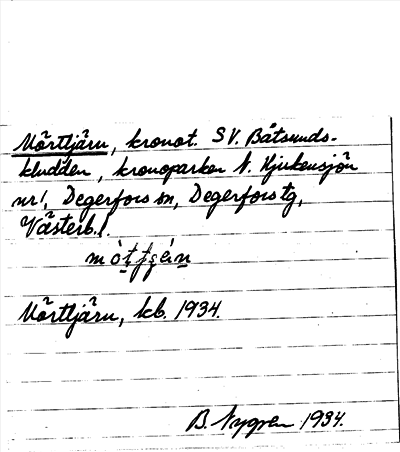 Mörttjärn, kronot. SV. Båtsunds-
kludden, kronoparken N. Hjukensjön
nr 1, Degerfors sn, Degerfors tg,
Västerb. l.
Mörttjärn, kb. 1934.
B. Nygren 1934.